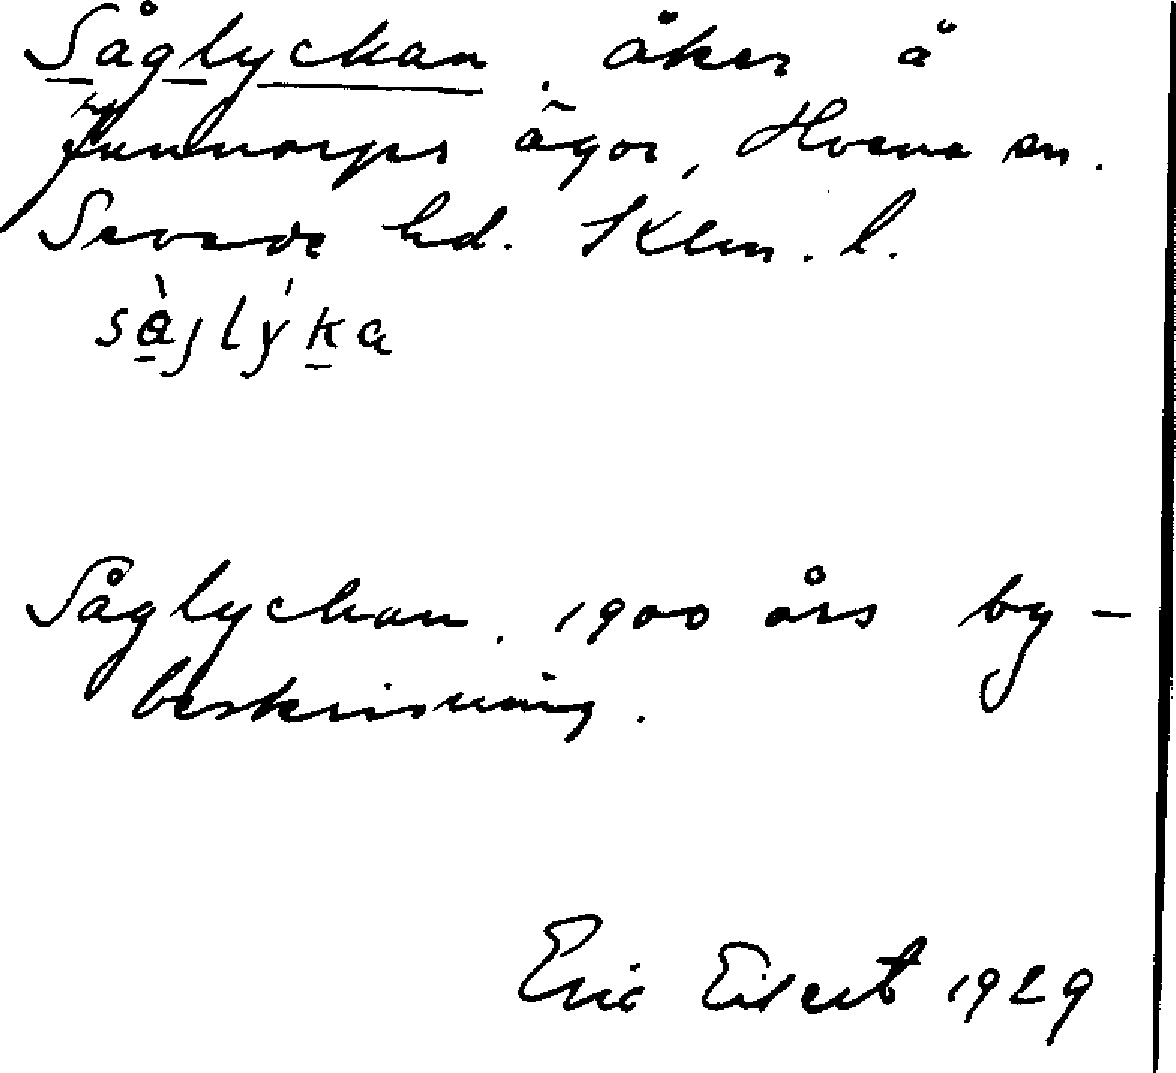 Såglyckan, åker å
Hunnorps ägor, Hvena sn.
Sevede hd. Klm. l.
sàjlýka
Såglyckan. 1900 års by-
beskrivning.
Eric Eilert 1929